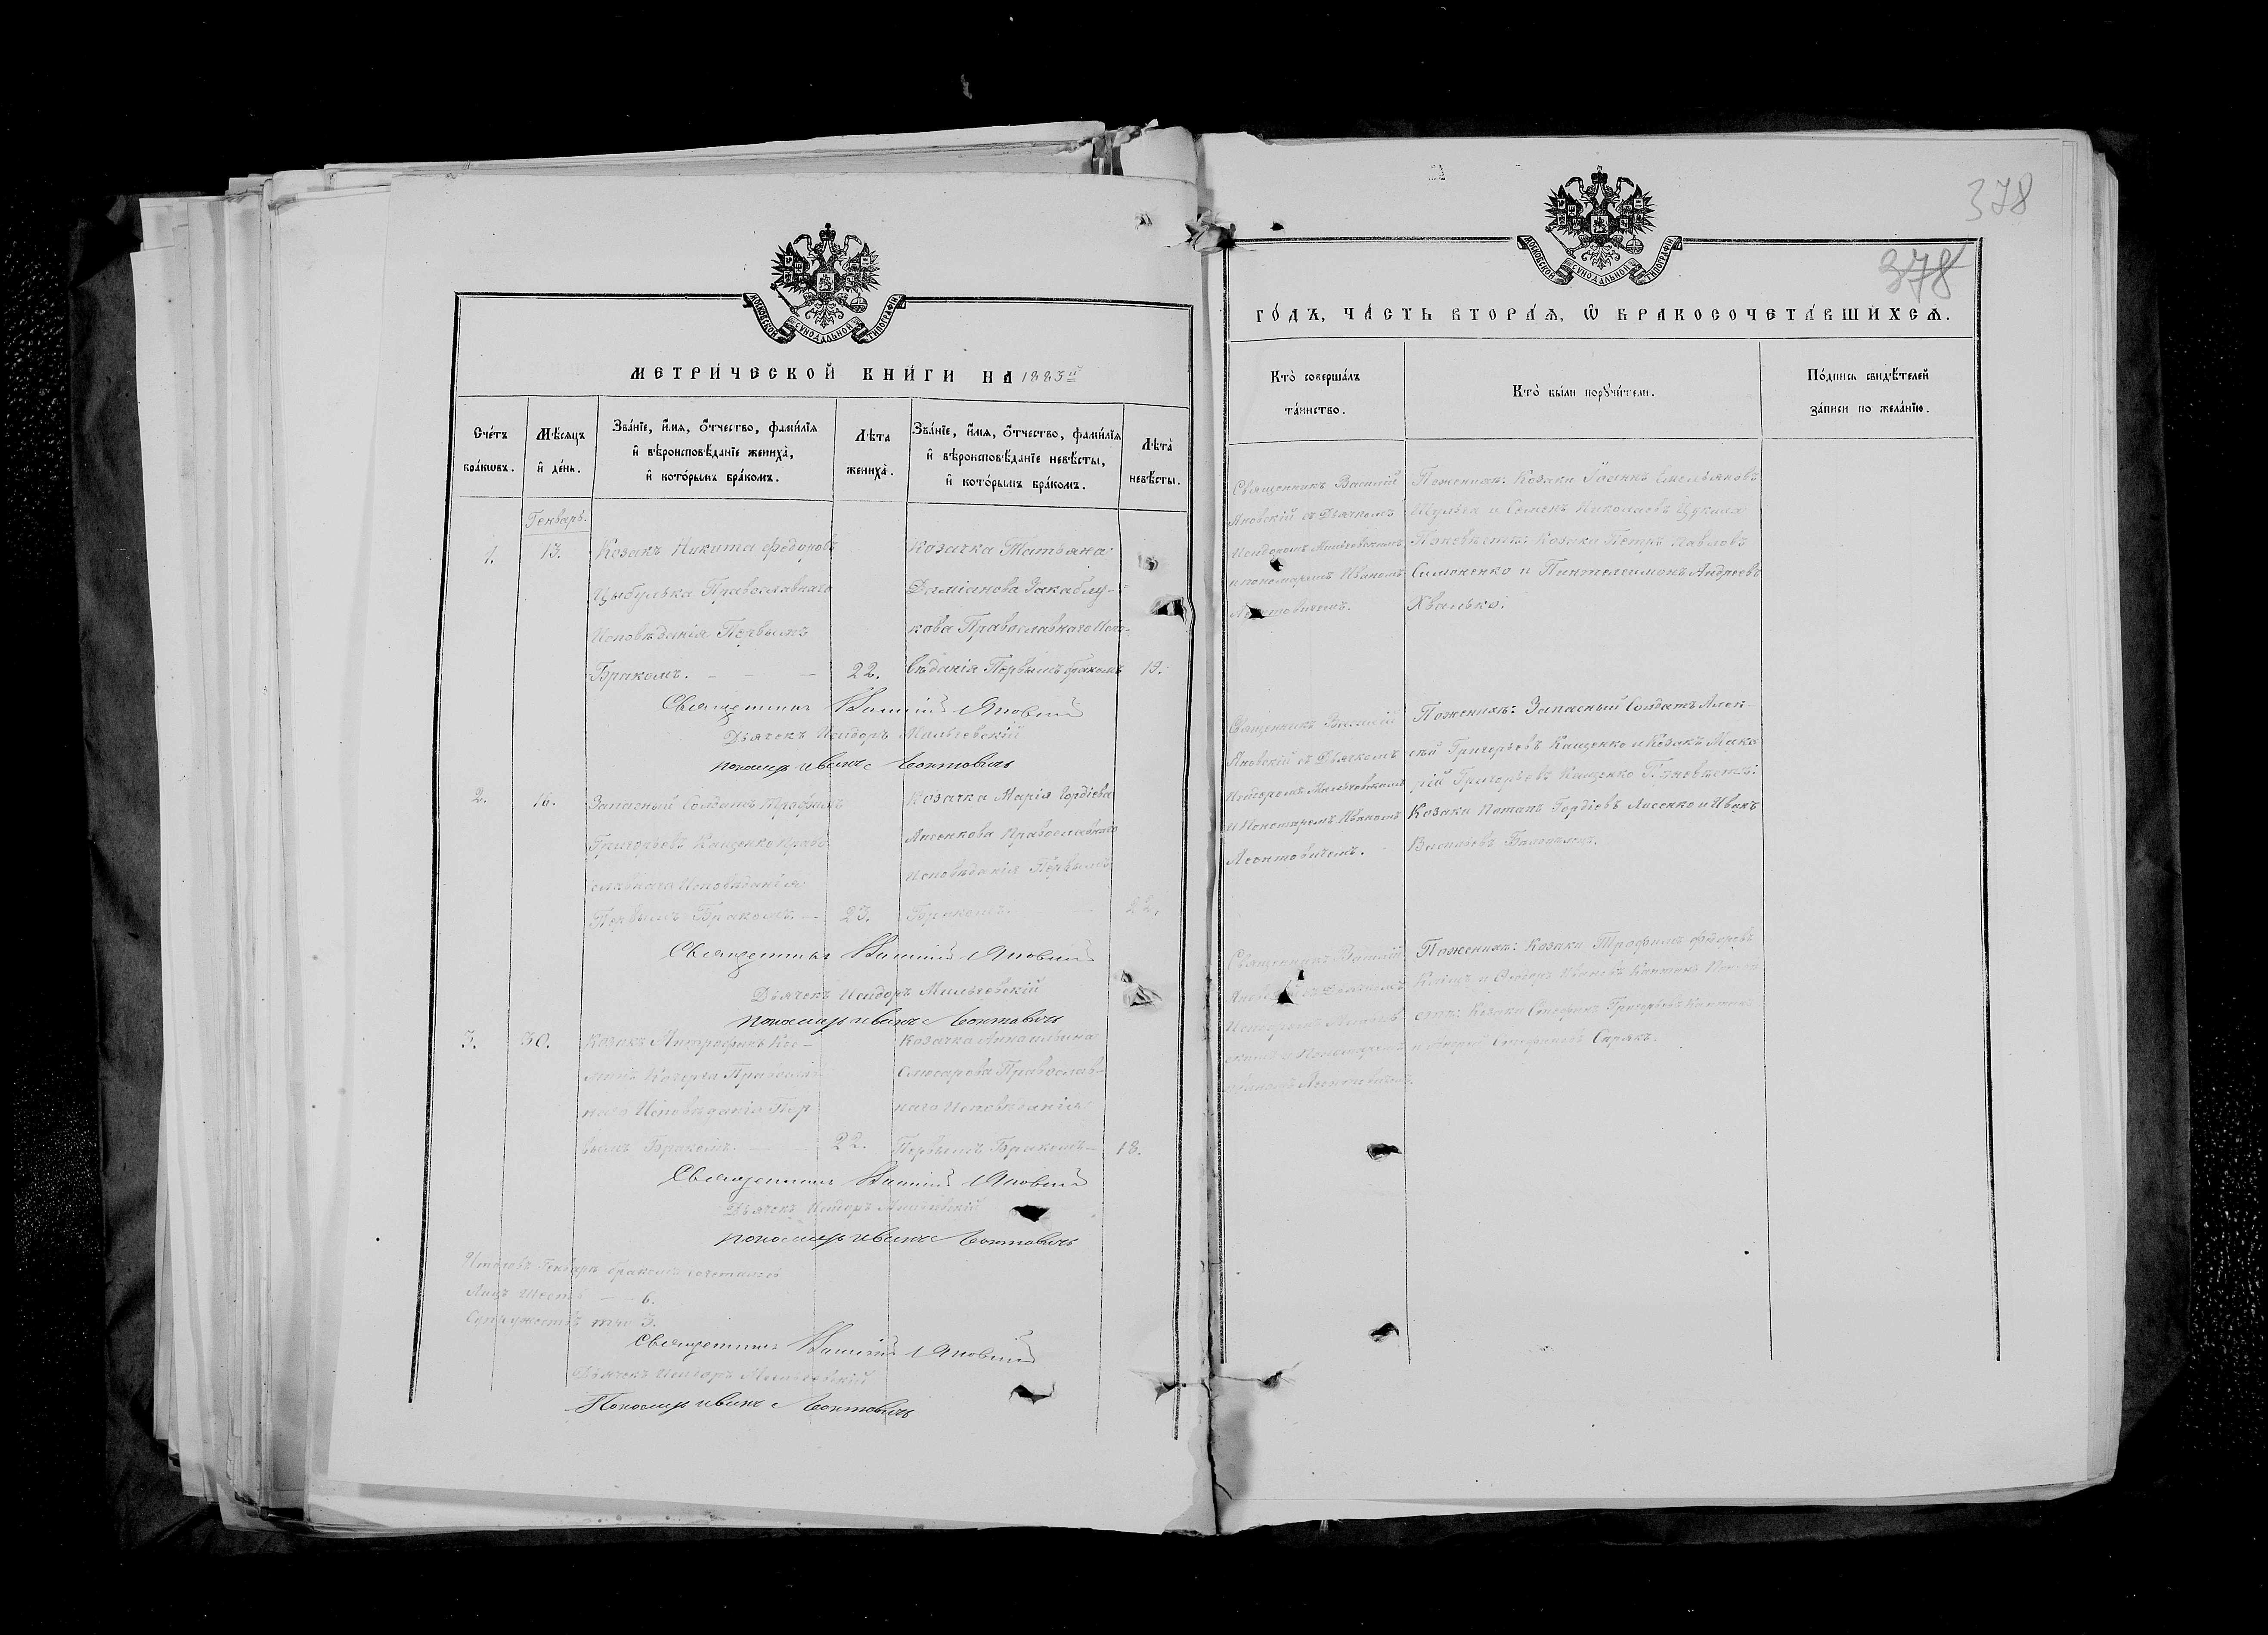 МОСКОВСКОЙ СУНОДАЛЬНОЙ ТИПОГРАФІИ
МЕТРИ́ЧЕСКОЙ КНИ́ГИ НА 1883й
Сче́тъ бра́кѡвъ.
Мѣ́сяцъ и҆ де́нь.
Зва́нїе, и҆́мѧ, ѻ҆́тчество, фами́лїѧ
и҆ вѣроисповѣ́данїе жениха̀,
и҆ кото́рымъ бра́комъ.
Лѣ́та жениха̀.
Зва́нїе, и҆́мѧ, ѻ҆́тчество, фами́лїѧ
и҆ вѣроисповѣ́данїе невѣ́сты,
и҆ кото́рымъ бра́комъ.
Лѣ́та невѣ́сты.
Генварь.
1.
13.
Козакъ Никита Федоровъ
Цыбулька Православнаго
Исповѣданія Первымъ
Бракомъ.
22.
Козачка Татьяна
Даміанова Закаблу-
кова Православнаго Испо-
вѣданія Первымъ бракомъ
19.
Священникъ Василій Яновскій
Дьячекъ Исидоръ
Пономарь Иванъ Леонтовичъ
2.
16.
Запасный Солдатъ Трофимъ
Григорьевъ Кащенко Право-
славнаго Исповѣданія
Первымъ Бракомъ.
23.
Козачка Марія Гордіева
Лисенкова Православнаго
Исповѣданія Первымъ
Бракомъ.
22.
Священникъ Василій Яновскій
Дьячекъ Исидоръ
Пономарь Иванъ Леонтовичъ
3.
30.
Козакъ Митрофанъ Кос-
Православ-
наго Исповѣданія Пер-
вымъ Бракомъ.
22.
Козачка Анна
Слюсарова Православ-
наго Исповѣданія
Первымъ Бракомъ
18.
Священникъ Василій Яновскій
Дьячекъ Исидоръ
Пономарь Иванъ Леонтовичъ
Генварѣ бракомъ сочеталось
Лицъ Шесть 6.
Супружествъ три 3.
Священникъ Василій Яновскій
Дьячекъ Исидоръ
Пономарь Иванъ Леонтовичъ
378
378
МОСКОВСКОЙ СУНОДАЛЬНОЙ ТИПОГРАФІИ
ГО́ДЪ, ЧА́СТЬ ВТОРА́Ѧ, Ѽ БРАКОСОЧЕТА́ВШИХСѦ.
Кто̀ соверша́лъ
та́инство.
Кто̀ бы́ли порꙋчи́тели.
По́дпись свидѣ́телей
за́писи по жела́нїю.
Священникъ Василій
Яновскій съ Дьячкомъ
Исидоромъ
и пономаремъ Иваномъ
Леонтовичемъ.
По женихѣ: Козаки Іоаннъ Емельяновъ
Шулька и Семенъ Николаевъ
По невѣстѣ: Козаки Петръ Павловъ
Симоненко и Пантелеимонъ Андреевъ
Хвалько.
Священникъ Василій
Яновскій съ Дьячкомъ
Исидоромъ
и Пономаремъ Иваномъ
Леонтовичемъ.
По женихѣ: Запасный Солдатъ Алек-
сѣй Григорьевъ Кащенко и Козакъ
Григорьевъ Кащенко По невѣстѣ:
Козаки Потапъ Гордіевъ Лисенко и Иванъ
Васильевъ
Священникъ Василій
съ Дьячкомъ
Исидоромъ
и Пономаремъ
Иваномъ Леонтовичемъ
По женихѣ: Козаки Трофимъ Федоровъ
и Федоръ Ивановъ
Козаки Стефанъ Григорьевъ
и Стефановъ